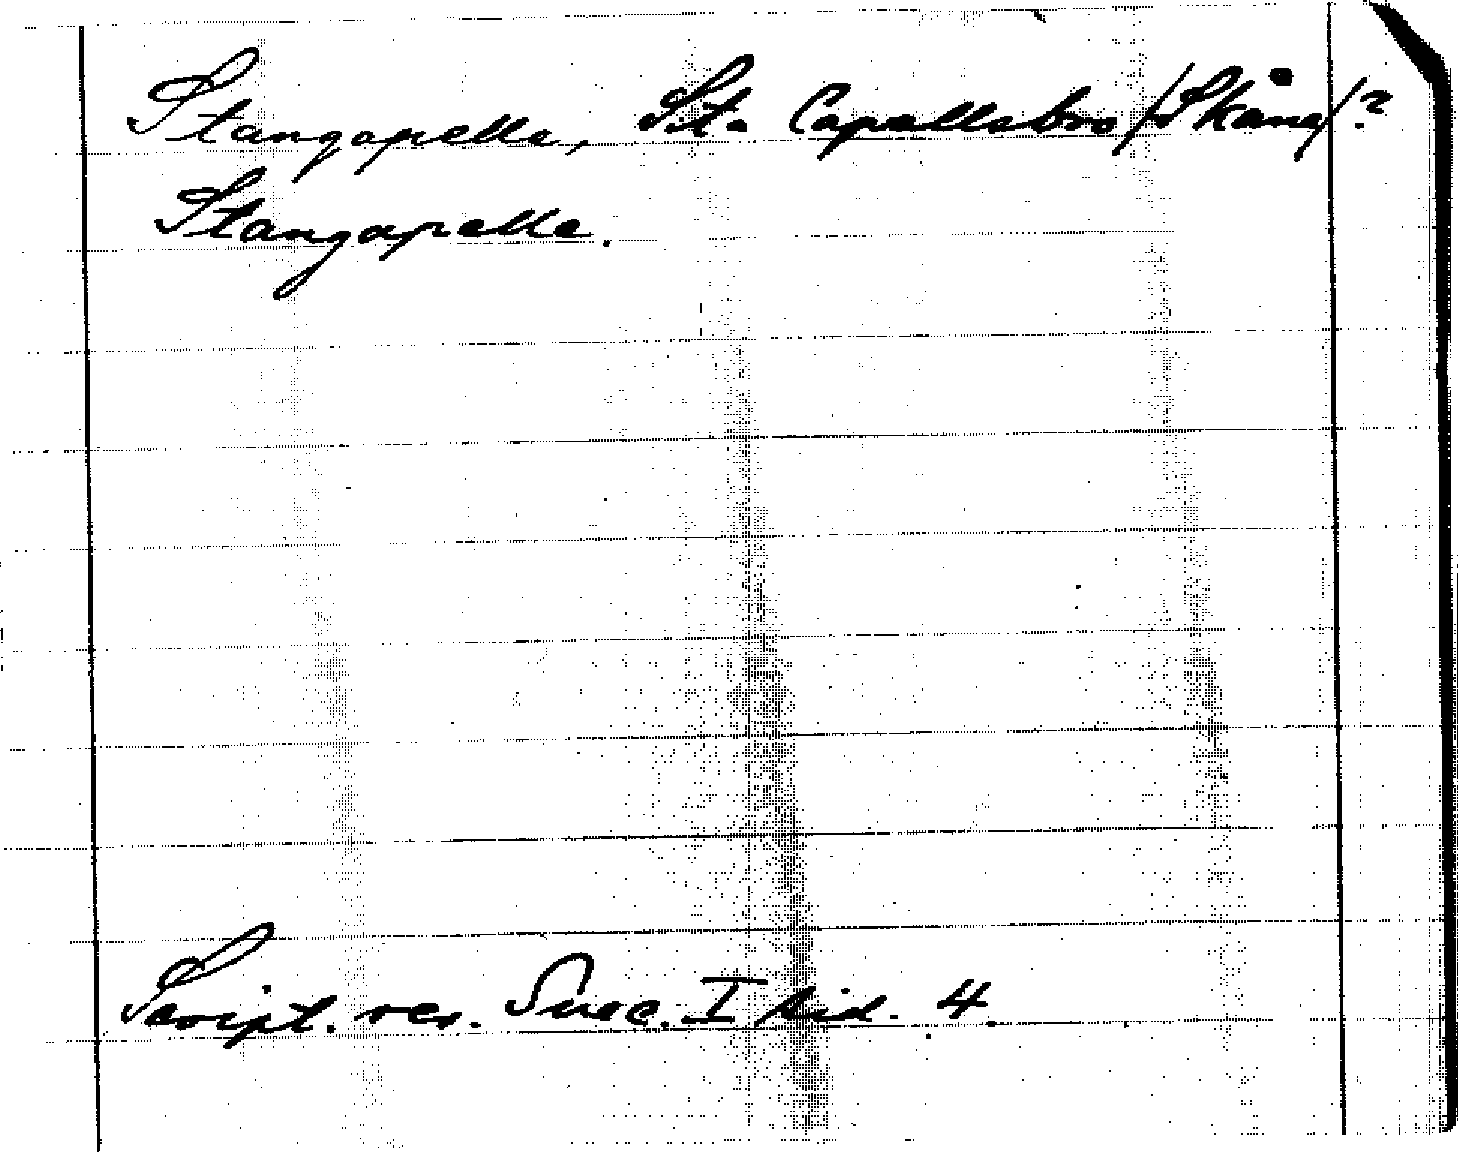 Stangapelle, St. Capellebro /Skåne/?
Stangapelle.
Script. rer. Suec. I sid. 4.